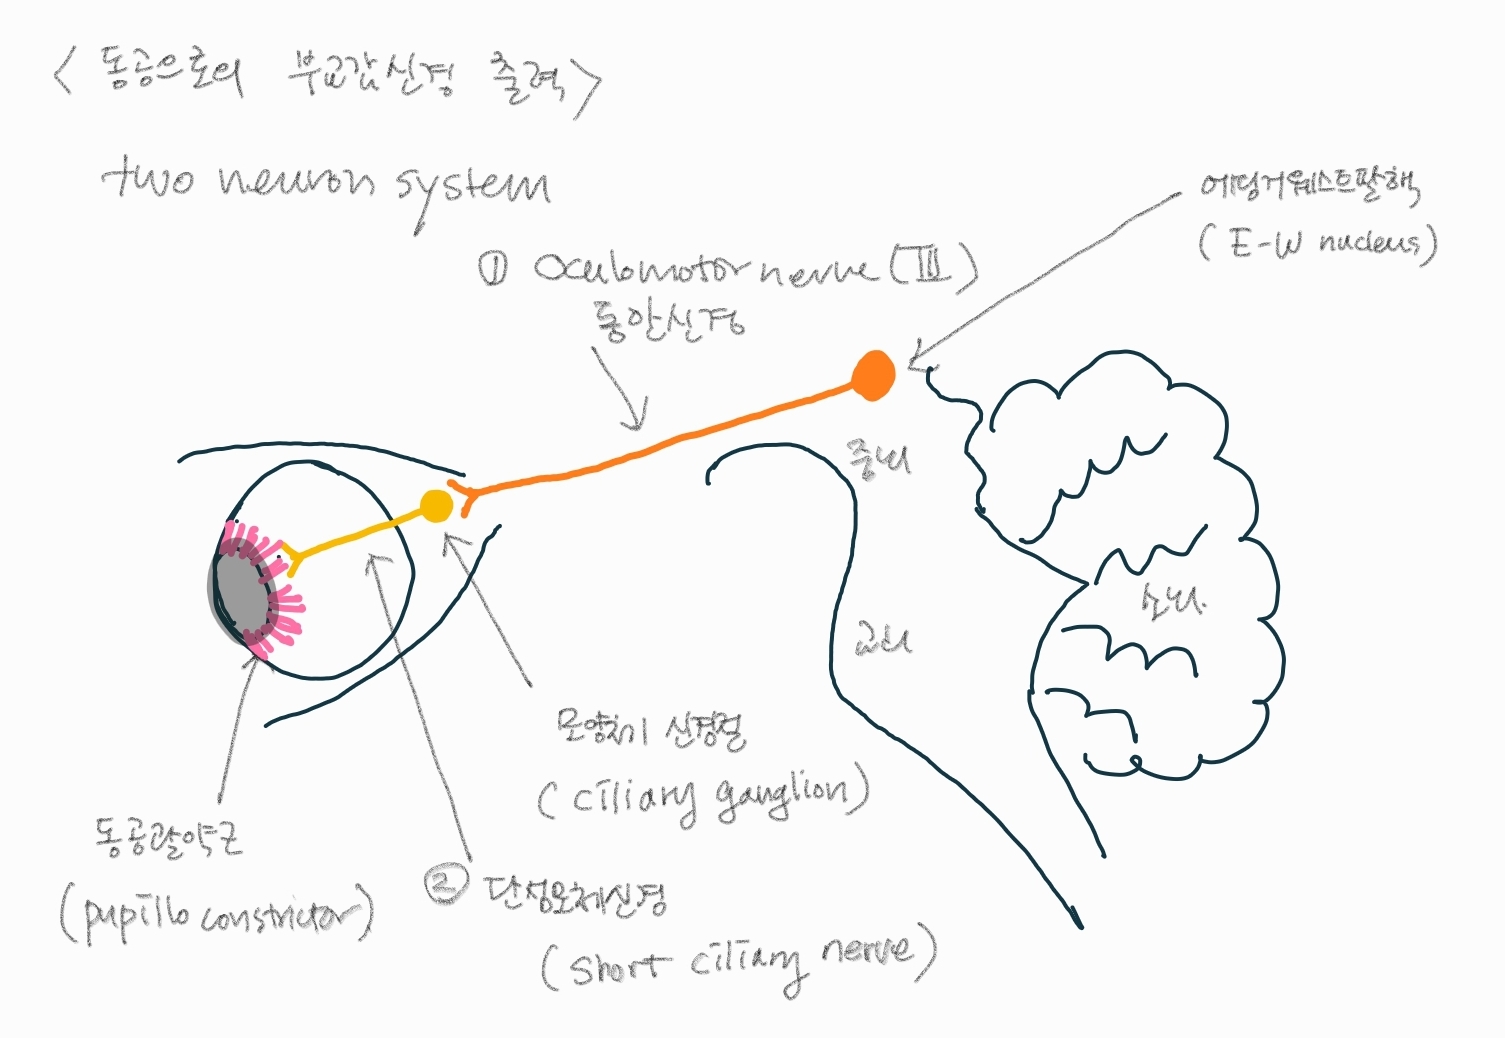 <동공으로의 부교감신경 출력>
two neuron system
에딩거웨스트팔핵
(E-W nucleus)
① Oculomotor nerve (Ⅲ)
동안신경
중뇌
소뇌
교뇌
모양체 신경절
(ciliary ganglion)
동공괄약근
(pupillo constrictor)
②
(short ciliary nerve)